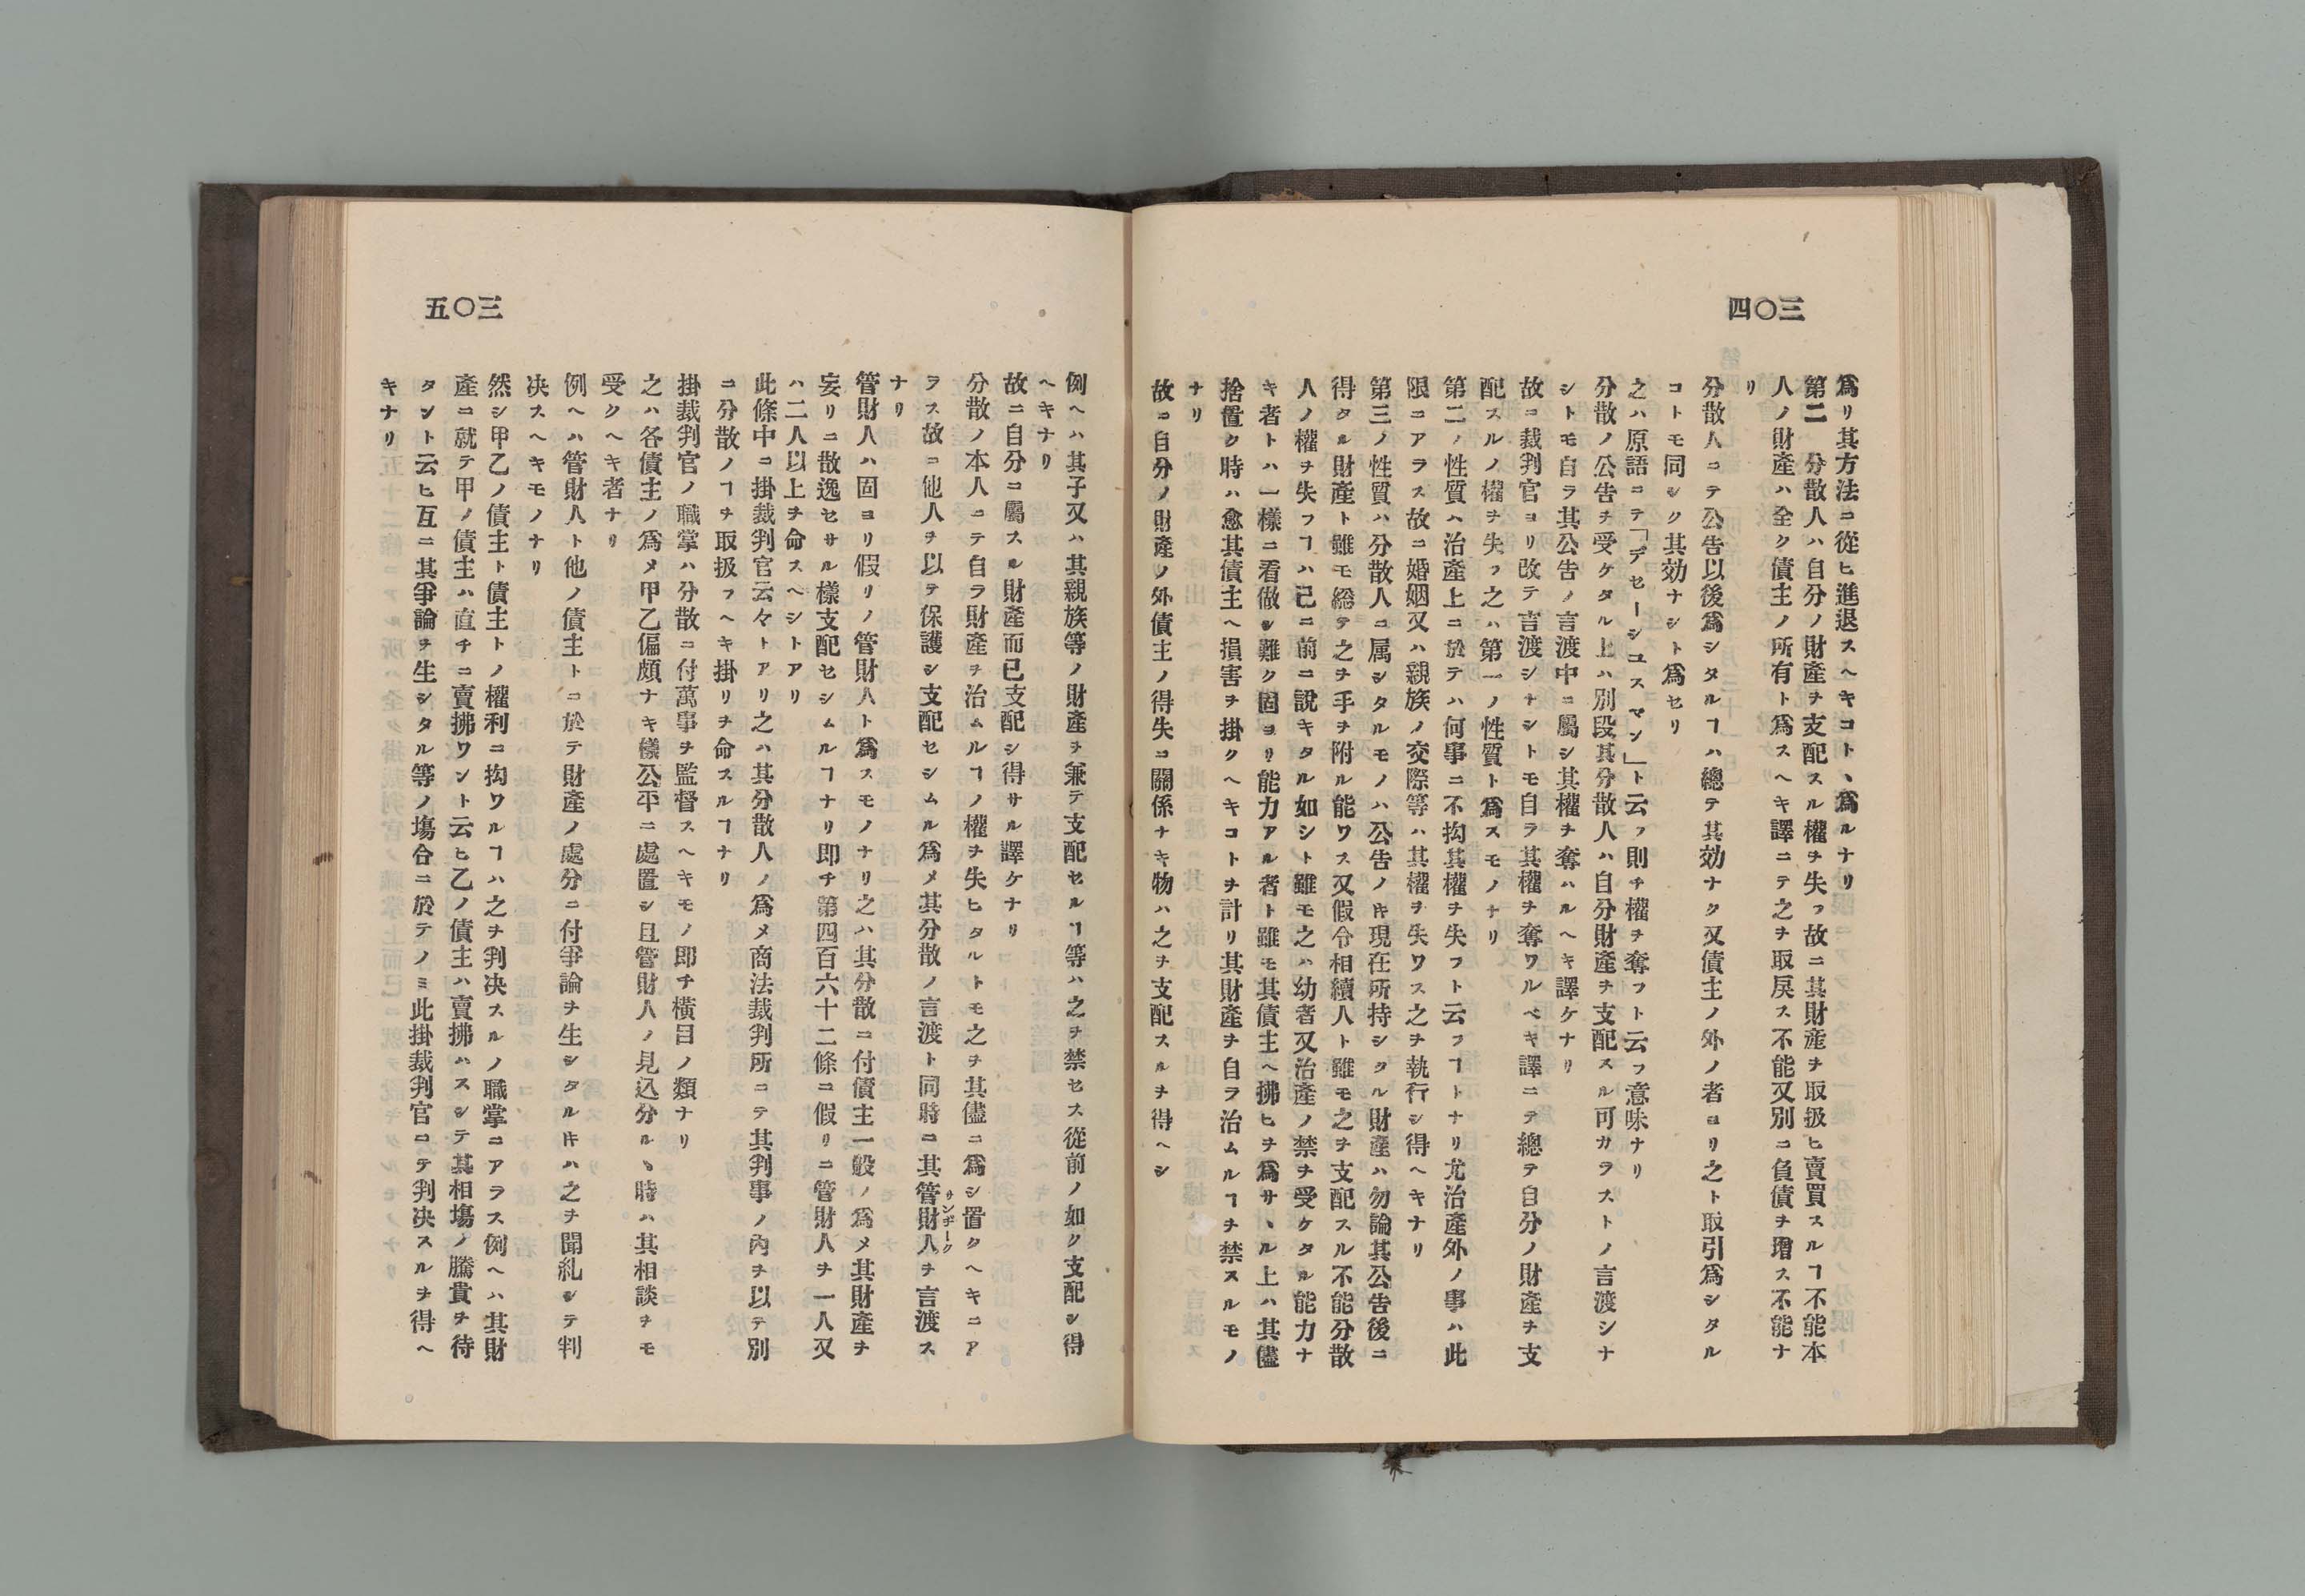 四〇三
爲リ其方法ニ從ヒ進退スヘキコトヽ爲ルナリ
第二　分散人ハ自分ノ財產ヲ支配スル權ヲ失フ故ニ其財產ヲ取扱ヒ賣買スルヿ不能本
人ノ財產ハ全ク債主ノ所有ト爲スヘキ譯ニテ之ヲ取戾ス不能又別ニ負債ヲ增ス不能ナ
リ
分散人ニテ公告以後爲シタルヿハ總テ其効ナク又債主ノ外ノ者ヨリ之ト取引爲シタル
コトモ同シク其効ナシト爲セリ
之ハ原語ニテ「デセーシユスマン」ト云フ則チ權ヲ奪フト云フ意味ナリ
分散ノ公告ヲ受ケタル上ハ別段其分散人ハ自分財產ヲ支配スル可カラストノ言渡シナ
シトモ自ラ其公告ノ言渡中ニ屬シ其權ヲ奪ハルヘキ譯ケナリ
故ニ裁判官ヨリ改テ言渡シナシトモ自ラ其權ヲ奪ワルベキ譯ニテ總テ自分ノ財產ヲ支
配スルノ權ヲ失フ之ハ第一ノ性質ト爲スモノナリ
第二ノ性質ハ治產上ニ於テハ何事ニ不拘其權ヲ失フト云フヿトナリ尤治產外ノ事ハ此
限ニアラス故ニ婚姻又ハ親族ノ交際等ハ其權ヲ失ワス之ヲ執行シ得ヘキナリ
第三ノ性質ハ分散人ニ属シタルモノハ公告ノ𪜈現在所持シタル財產ハ勿論其公告後ニ
得タル財產ト雖モ総テ之ヲ手ヲ附ル能ワス又假令相續人ト雖モ之ヲ支配スル不能分散
人ノ權ヲ失フヿハ已ニ前ニ說キタル如シト雖モ之ハ幼者又治產ノ禁ヲ受ケタル能力ナ
キ者トハ一樣ニ看做シ難ク固ヨリ能力アル者ト雖モ其債主ヘ拂ヒヲ爲サヽル上ハ其儘
捨置ク時ハ愈其債主ヘ損害ヲ掛クヘキコトヲ計リ其財產ヲ自ラ治ムルヿヲ禁スルモノ
ナリ
故ニ自分ノ財產ノ外債主ノ得失ニ關係ナキ物ハ之ヲ支配スルヲ得ヘシ
五〇三
例ヘハ其子又ハ其親族等ノ財產ヲ兼テ支配セルヿ等ハ之ヲ禁セス從前ノ如ク支配シ得
ヘキナリ
故ニ自分ニ屬スル財產而已支配シ得サル譯ケナリ
分散ノ本人ニテ自ラ財產ヲ治ムルヿノ權ヲ失ヒタルトモ之ヲ其儘ニ爲シ置クヘキニア
ラス故ニ他人ヲ以テ保護シ支配セシムル爲メ其分散ノ言渡ト同時ニ其管財人サンヂークヲ言渡ス
ナリ
管財人ハ固ヨリ假リノ管財人ト爲スモノナリ之ハ其分散ニ付債主一般ノ爲メ其財產ヲ
妄リニ散逸セサル樣支配セシムルヿナリ即チ第四百六十二條ニ假リニ管財人ヲ一人又
ハ二人以上ヲ命スヘシトアリ
此條中ニ掛裁判官云々トアリ之ハ其分散人ノ爲メ商法裁判所ニテ其判事ノ內ヲ以テ別
ニ分散ノヿヲ取扱フヘキ掛リヲ命スルヿナリ
掛裁判官ノ職掌ハ分散ニ付萬事ヲ監督スヘキモノ即チ橫目ノ類ナリ
之ハ各債主ノ爲メ甲乙偏頗ナキ樣公平ニ處置シ且管財人ノ見込分ルヽ時ハ其相談ヲモ
受クヘキ者ナリ
例ヘハ管財人ト他ノ債主トニ於テ財產ノ處分ニ付爭論ヲ生シタル𪜈ハ之ヲ聞糺シテ判
决スヘキモノナリ
然シ甲乙ノ債主ト債主トノ權利ニ拘ワルヿハ之ヲ判决スルノ職掌ニアラス例ヘハ其財
產ニ就テ甲ノ債主ハ直チニ賣拂ワント云ヒ乙ノ債主ハ賣拂ハスシテ其相塲ノ騰貴ヲ待
タント云ヒ互ニ其爭論ヲ生シタル等ノ塲合ニ於テノミ此掛裁判官ニテ判决スルヲ得ヘ
キナリ